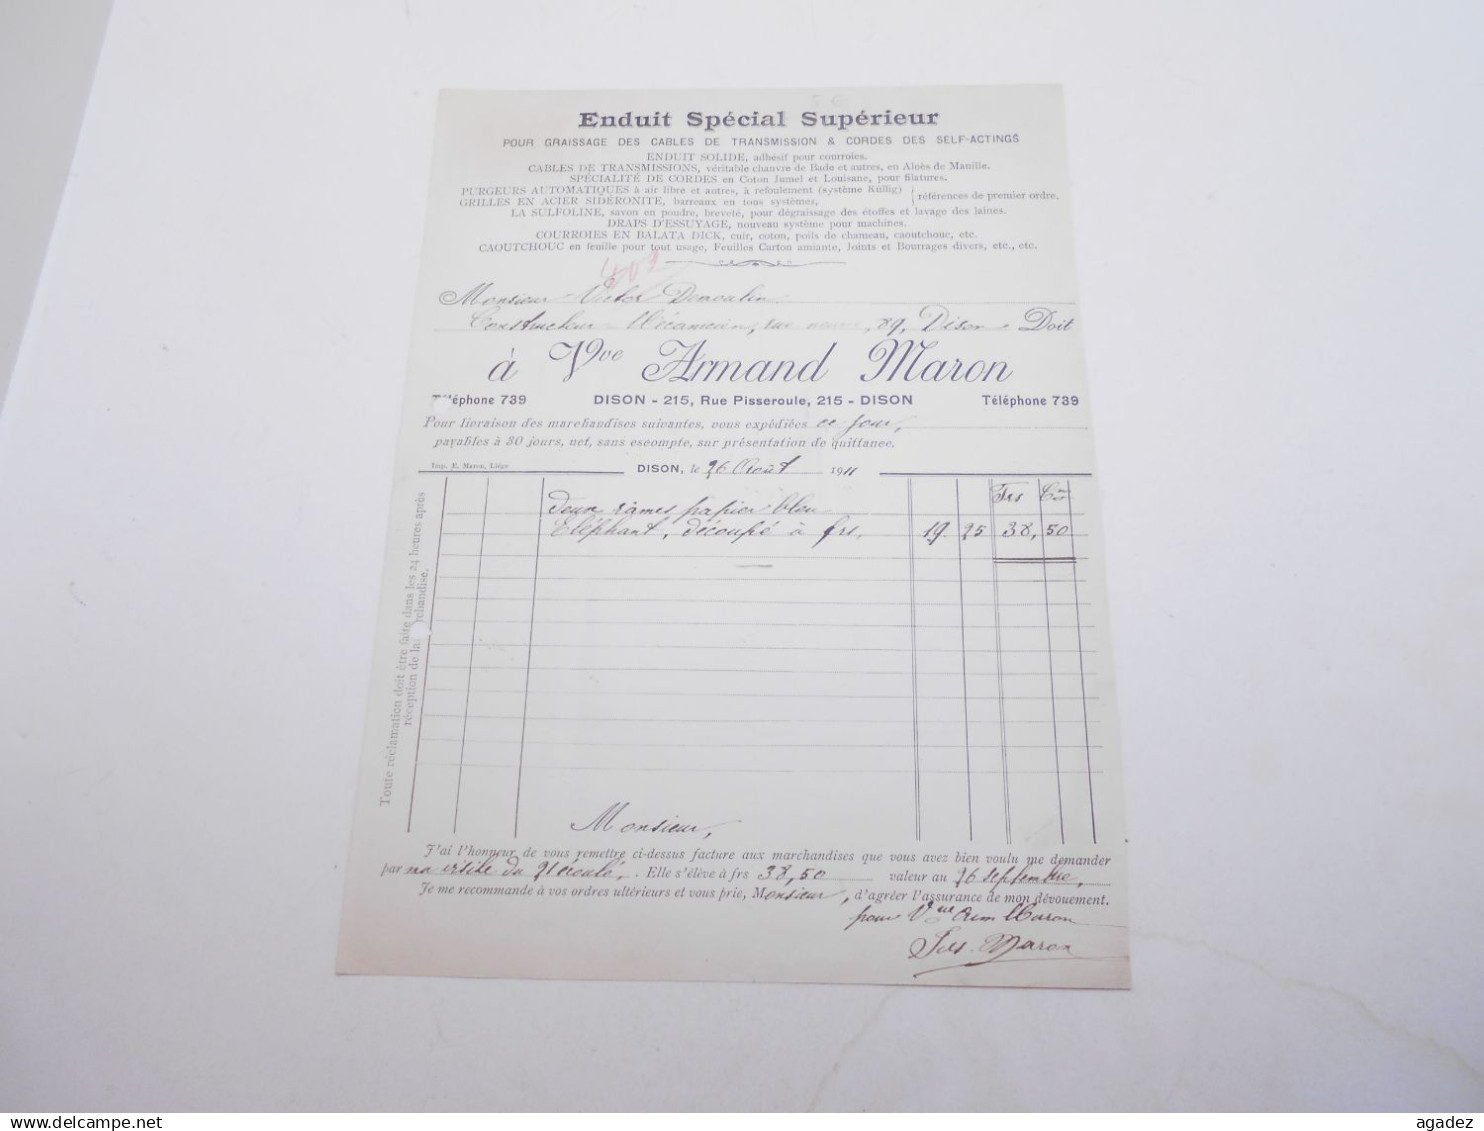 Enduit Spécial Supérieur
POUR GRAISSAGE DES CABLES DE TRANSMISSION & CORDES DES SELF-ACTINGS
ENDUIT SOLIDE, adhésif pour courroies.
CABLES DE TRANSMISSIONS, véritable chanvre de Bade et autres, en Aloès de Manille.
SPÉCIALITÉ DE CORDES en Coton Jumel et Louisane, pour filatures.
PURGEURS AUTOMATIQUES à air libre et autres, à refoulement (système Küllig)
GRILLES EN ACIER SIDÉRONITE, barreaux en tous systèmes,
références de premier ordre.
LA SULFOLINE, savon en poudre, breveté, pour dégraissage des étoffes et lavage des laines.
DRAPS D'ESSUYAGE, nouveau système pour machines.
COURROIES EN BALATA DICK, cuir, coton, poils de chameau, caoutchouc, etc.
CAOUTCHOUC en feuille pour tout usage, Feuilles Carton amiante, Joints et Bourrages divers, etc., etc.
Monsieur Victor Demoulin
Constructeur Mécanicien, rue neuve, 89, Dison Doit
à Vve Armand Maron
Téléphone 739 DISON - 215, Rue Pisseroule, 215 - DISON Téléphone 739
Pour livraison des marchandises suivantes, vous expédiées ce jour,
payables à 30 jours, net, sans escompte, sur présentation de quittance.
Imp. E. Maron, Liége
DISON, le 26 Août 1911
Frs Cs
Deux râmes papier bleu
Eléphant, découpé à frs. 19 25 38, 50
Toute réclamation doit être faite dans les 24 heures après
réception de la marchandise.
Monsieur,
J'ai l'honneur de vous remettre ci-dessus facture aux marchandises que vous avez bien voulu me demander
par ma visite du 21 écoulé. Elle s'élève à frs 38,50 valeur au 26 septembre,
Je me recommande à vos ordres ultérieurs et vous prie, Monsieur, d'agréer l'assurance de mon dévouement.
pour Vve Arm Maron
Maron
agadez